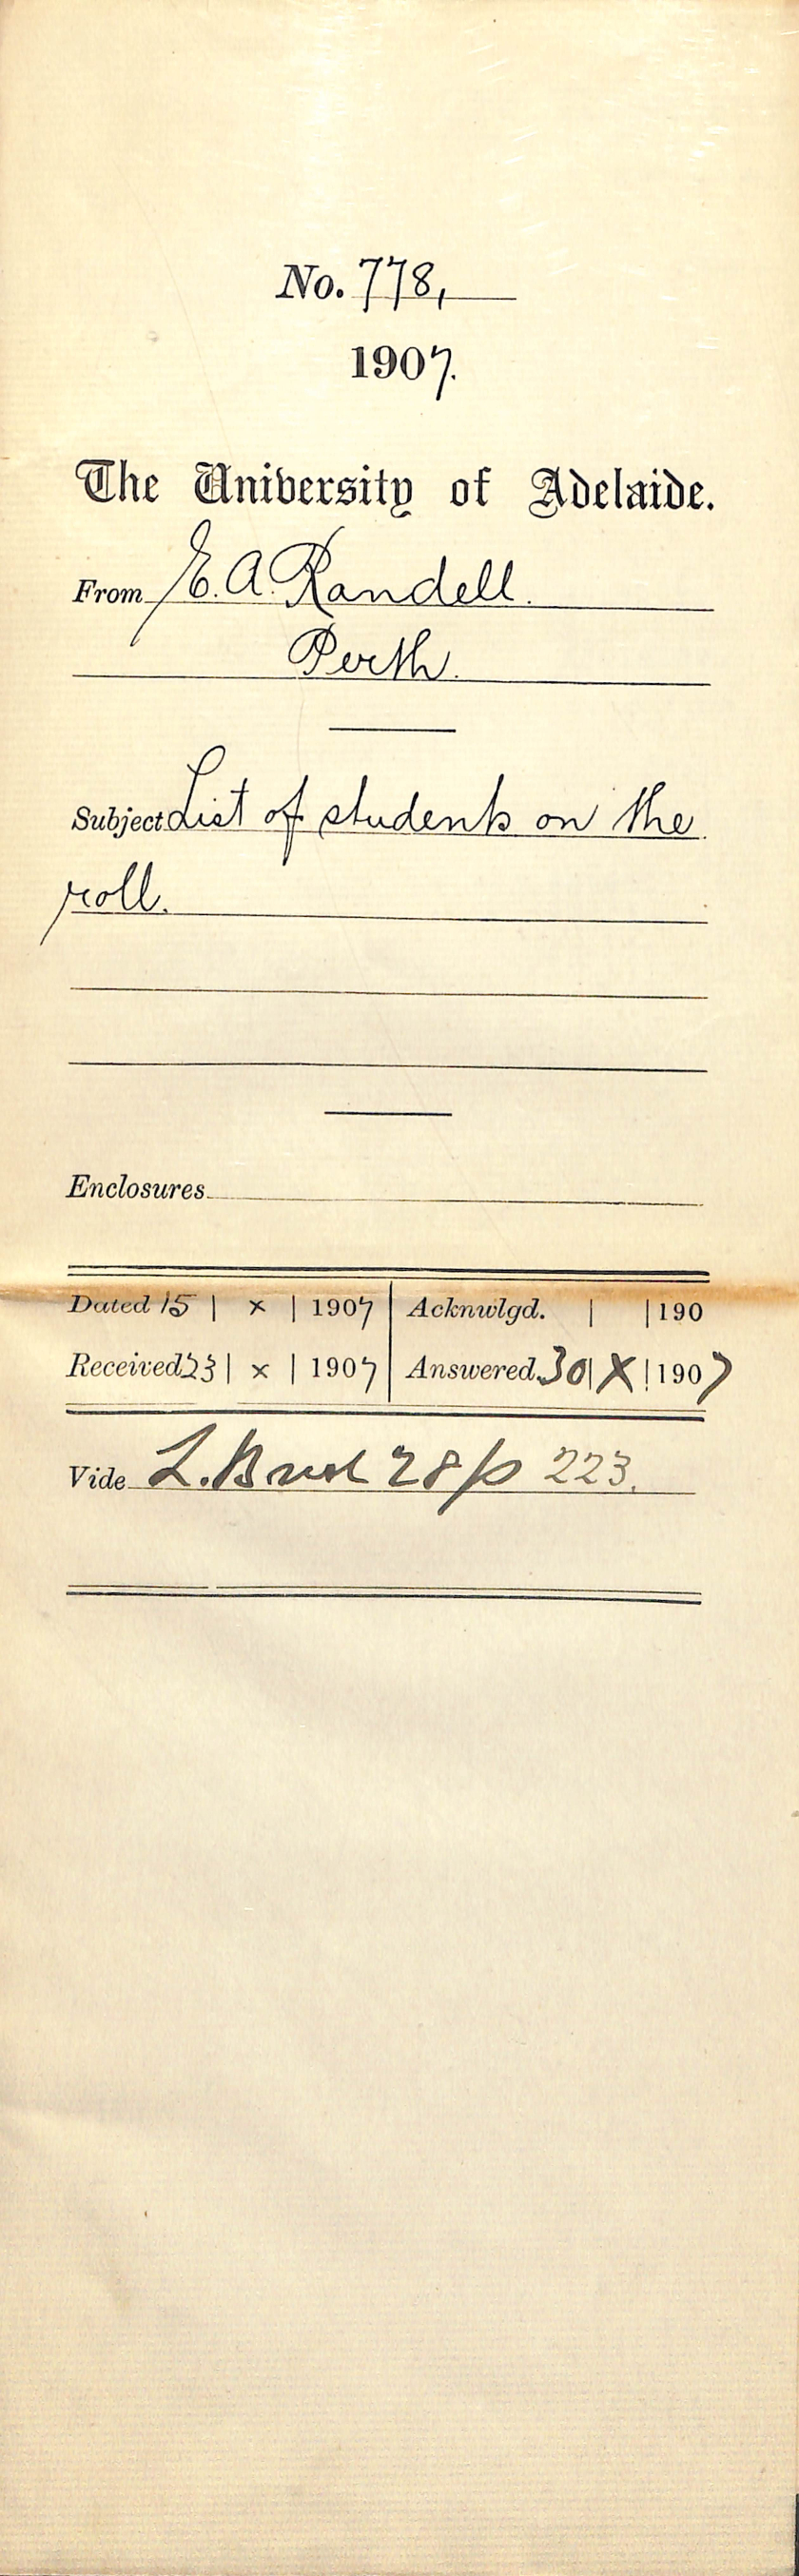 No. 778,
1907.
The University of Adelaide.
From E. A. Randell.
Perth.
Subject List of students on the
roll.
Enclosures
Dated 15 | x | 1907 | Acknwlgd. | | 190
Received 23 | x | 1907 | Answered. 30 | X | 1907
Vide L. Book 28 p 223.